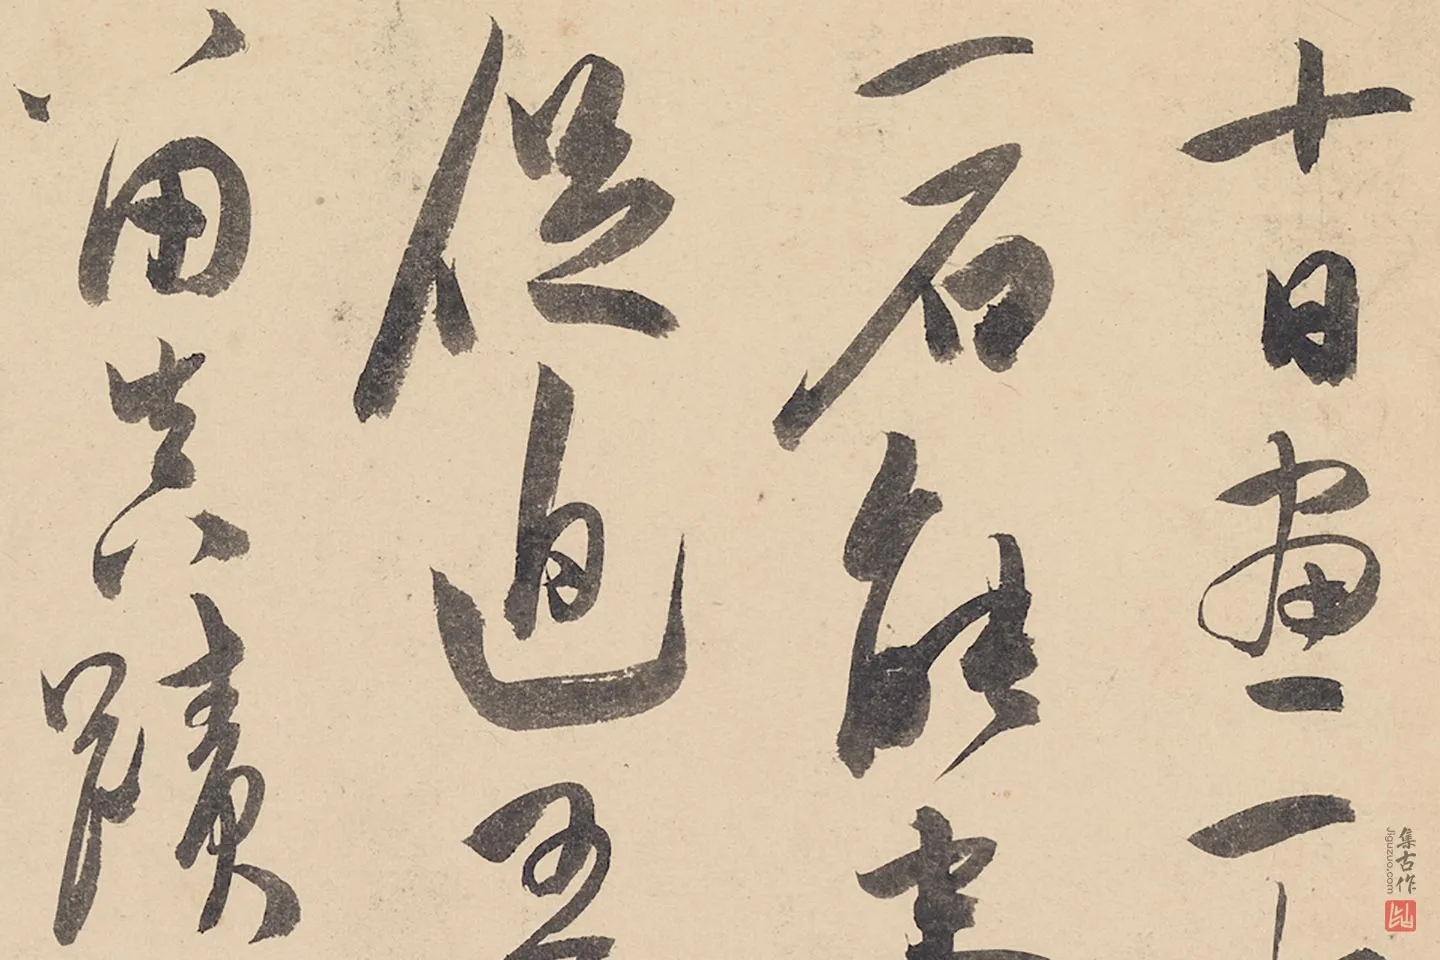 十日畫一
一石能事
促迫
留真蹟
集古作
jiguzuo.com